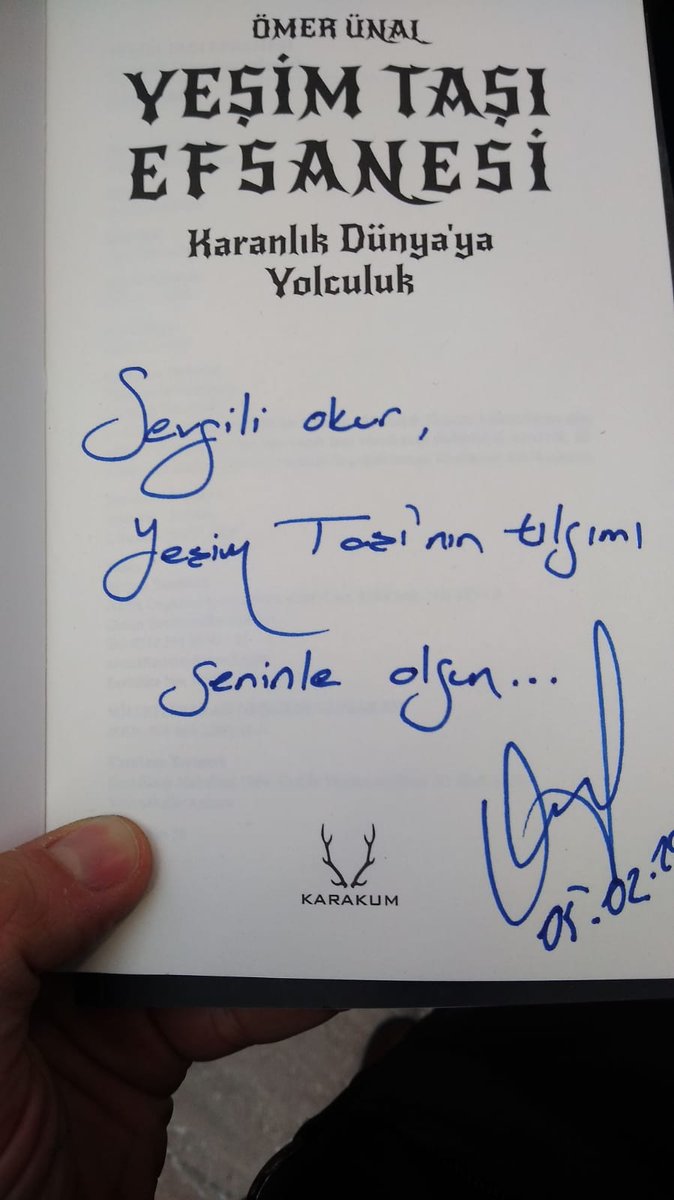 ÖMER ÜNAL
YEŞİM TAŞI
EFSANESİ
Karanlık Dünya'ya
Yolculuk
Sevgili okur,
Yeşim Taşı'nın tılsımı
seninle olsun...
KARAKUM
05.02.